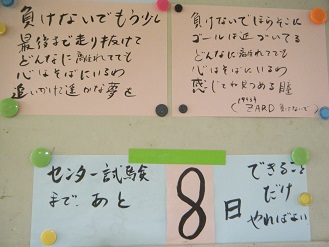 負けないでもう少し
最後まで走り抜けて
どんなに離れてても
心はそばにいるわ
追いかけて遥かな夢を
負けないでほらそこに
ゴールは近づいてる
どんなに離れてても
心はそばにいるわ
感じてね見つめる瞳
ZARD 負けないで
センター試験
まで あと
8
日
できること
だけ
やればよい